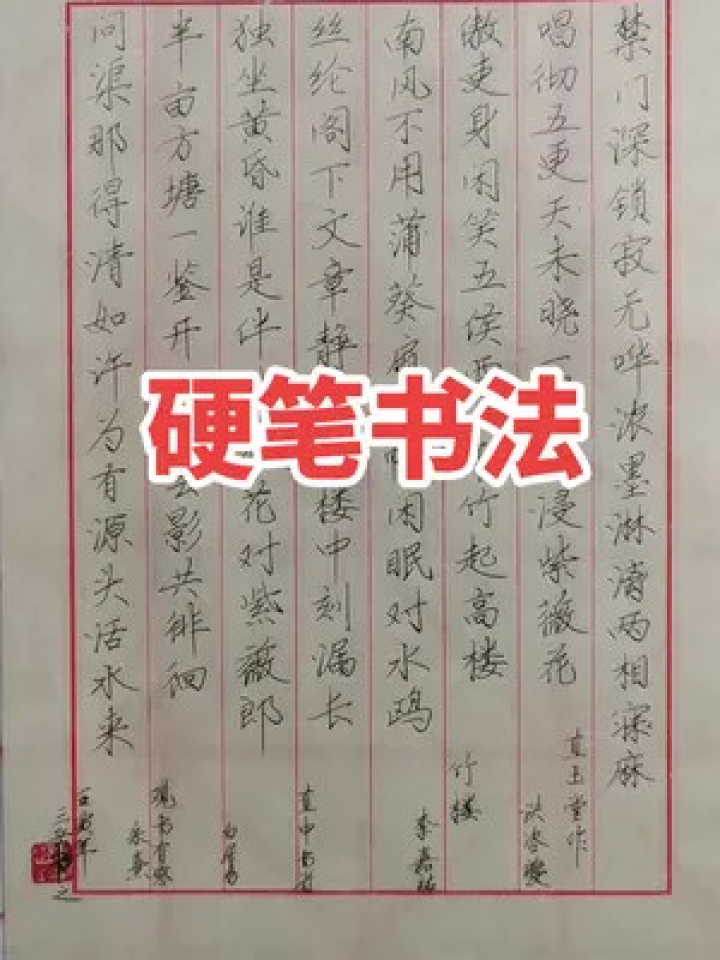 禁门深锁寂无哗浓墨淋漓两相麻
直玉堂作
洪咨夔
唱彻五更天未晓一浸紫薇花
傲吏身闲笑五侯西竹起高楼
竹楼
李嘉祐
南风不用蒲葵闲眠对水鸥
丝纶阁下文章静楼中刻漏长
直中书省
白居易
独坐黄昏谁是伴花对紫薇郎
半亩方塘一鉴开云影共徘徊
观书有感
朱熹
问渠那得清如许为有源头活水来
壬寅年
硬笔书法